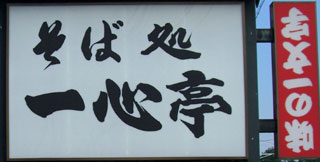 そば処
一心亭
味の一文字